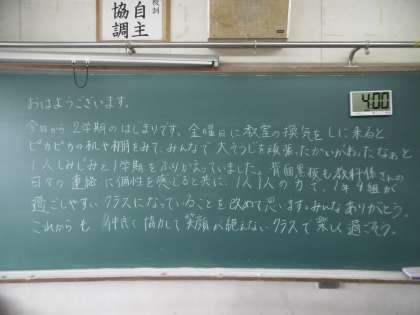 校訓
自主
協調
4:00
おはようございます。
今日から2学期のはじまりです。金曜日に教室の換気をしに来ると
ピカピカの机や棚をみて、みんなで大そうじを頑張ったかいがあったなぁと
1人しみじみと1学期をふりかえっていました。背面黒板も教科係さんの
日々の連絡に個性を感じると共に、1人1人の力で、1年 組が
過ごしやすいクラスになっていることを改めて思います。みんなありがとう。
これからも 仲良く協力して笑顔が絶えないクラスで楽しく過ごそう。